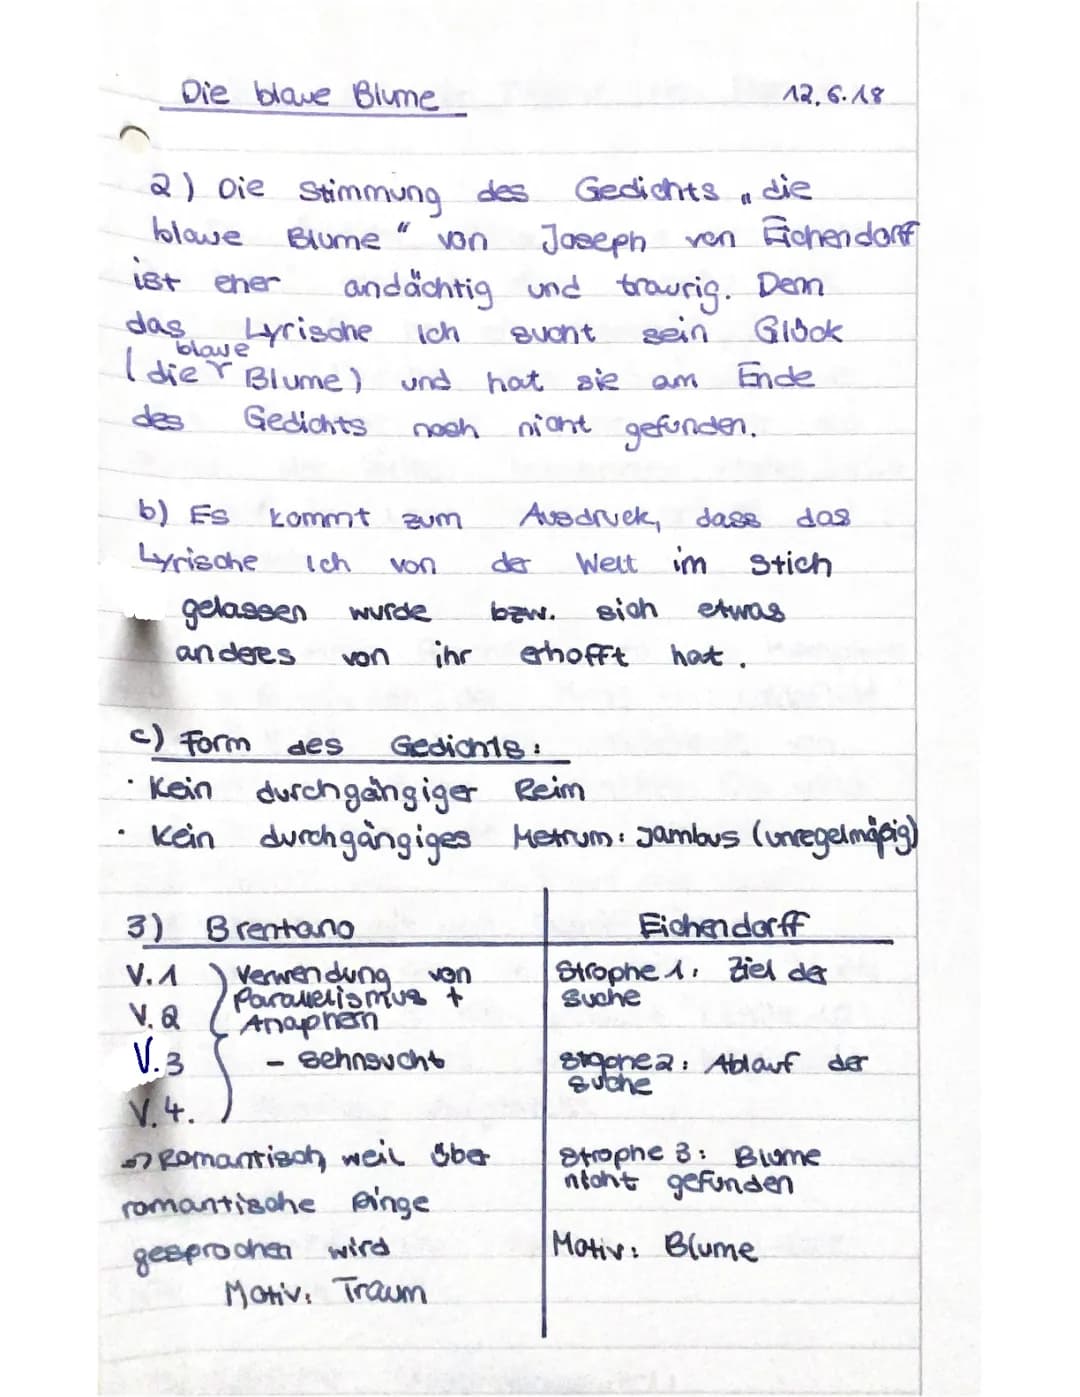 Die blaue Blume 12.6.18
2) Die Stimmung des Gedichts „die
blaue Blume" von Joseph von Eichendorff
ist eher andächtig und traurig. Denn
das Lyrische Ich sucht sein Glück
(die blaue Blume) und hat sie am Ende
des Gedichts noch nicht gefunden.
b) Es kommt zum Ausdruck, dass das
Lyrische Ich von der Welt im Stich
gelassen wurde bzw. sich etwas
anderes von ihr erhofft hat.
c) Form des Gedichts:
· Kein durchgängiger Reim
· Kein durchgängiges Metrum: Jambus (unregelmäßig)
3) Brentano
V.1 } Verwendung von
Parallelismus +
V.2 Anaphern
V.3 - Sehnsucht
V.4.
=> Romantisch, weil über
romantische Dinge
gesprochen wird
Motiv: Traum
Eichendorff
Strophe 1: Ziel der
Suche
Strophe 2: Ablauf der
Suche
Strophe 3: Blume
nicht gefunden
Motiv: Blume